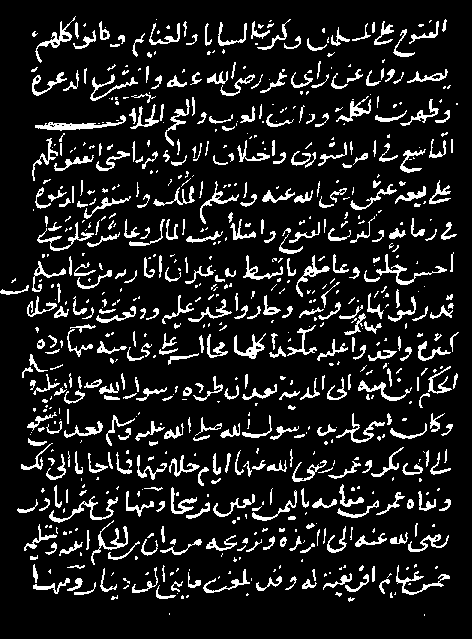 الفتوح على المسلمين وكثرت السبايا والغنايم وكانوا كلهم
يصدرون عن راي عمر رضي الله عنه وانتشرت الدعوة
وظهرت الكلمة ودانت العرب والعجم الخلاف
التاسع في امر الشورى واختلاف الاراء فيها حتى اتفقوا كلهم
على بيعة عثمن رضي الله عنه وانتظم الملك واستقرت الدعوة
في زمانه وكثرت الفتوح وامتلأ بيت المال وعاشر الخلق على
احسن خلق وعاملهم بابسط يد غير ان اقاربه من بني امية
قد ركبوا نهابر فركبته وجاروا فجير عليه ووقعت في زمانه اختلافات
كثيرة واخذوا عليه مآخذ كلها محالة على بني امية منها رده
الحكم ابن أمية الى المدينة بعد ان طرده رسول الله صلى الله عليه وسلم
وكان يسمى طريد رسول الله صلى الله عليه وسلم بعد ان تشفع
الى ابي بكر وعمر رضي الله عنهما ايام خلافتهما فما اجابا الى ذلك
ونفاه عمر من مقامه باليمن اربعين فرسخا ومنها نفي عثمن اباذر
رضي الله عنه الى الربذة وتزويجه مروان بن الحكم ابنته وتسليمه
خمس غنايم افريقية له وقد بلغت مايتي الف دينار ومنها